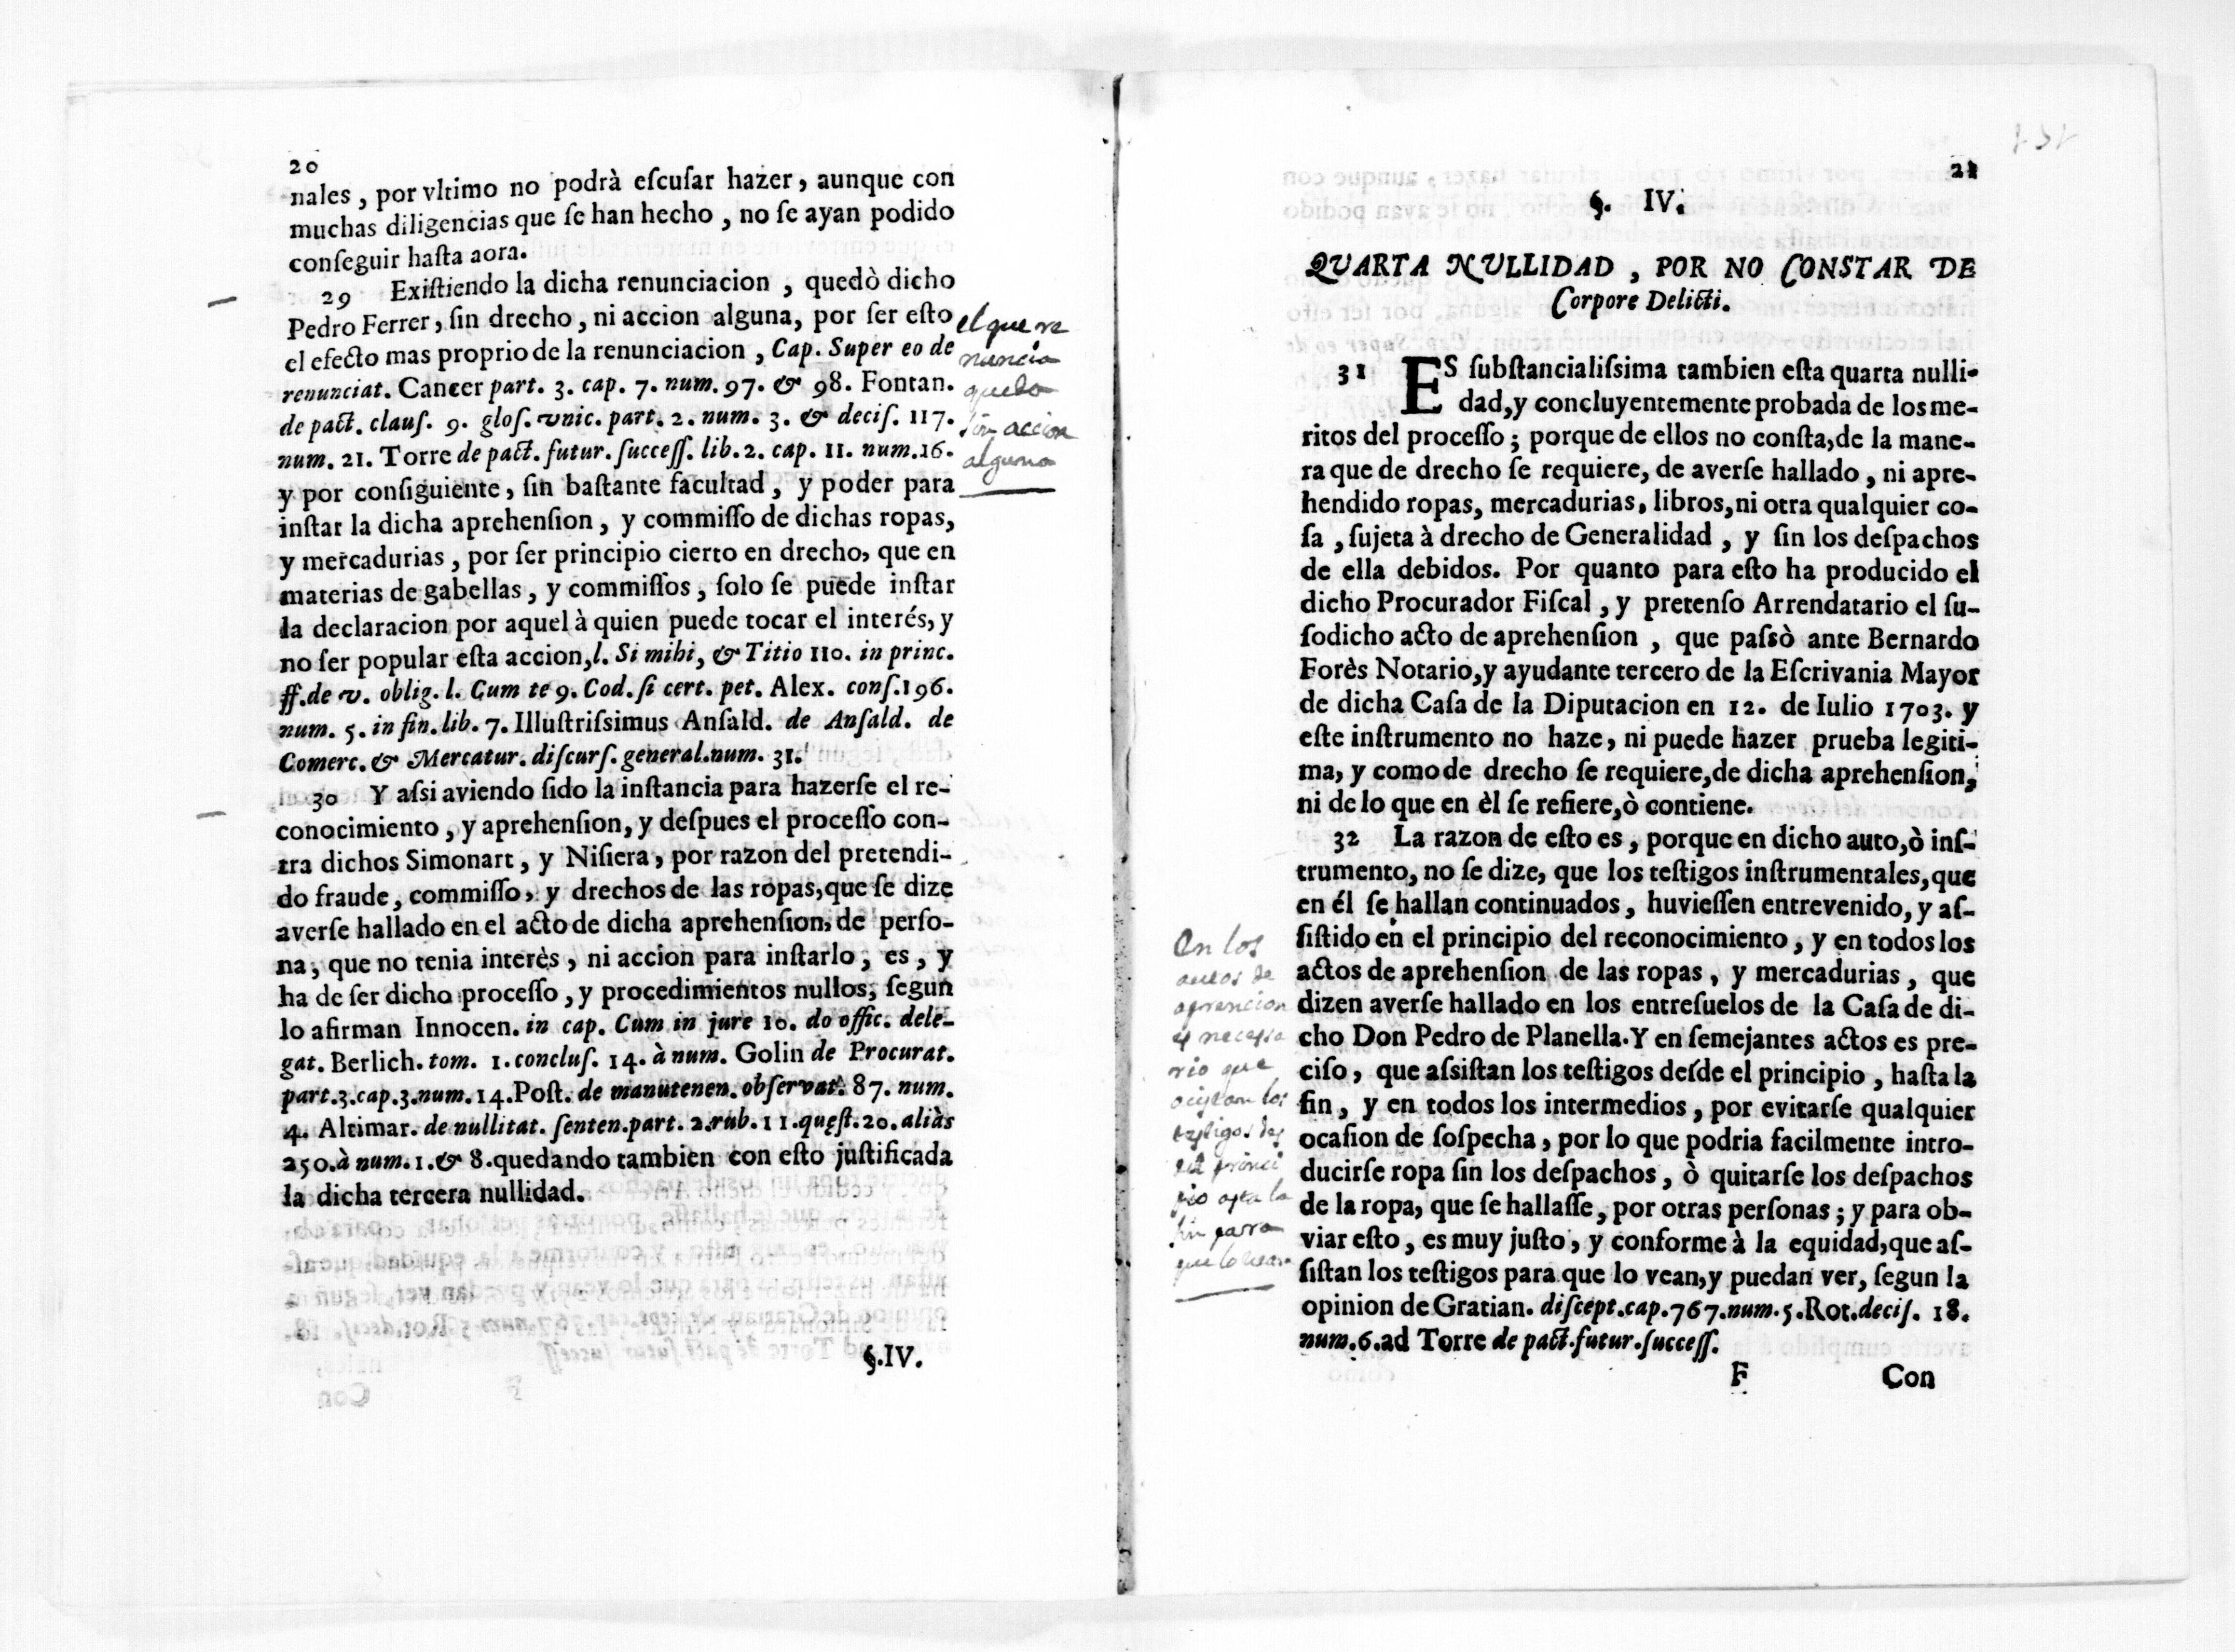 20
nales , por vltimo no podrà eſcuſar hazer, aunque con
muchas diligencias que ſe han hecho , no ſe ayan podido
conſeguir haſta aora.
29 Exiſtiendo la dicha renunciacion , quedò dicho
Pedro Ferrer, ſin drecho, ni accion alguna, por ſer eſto
el efecto mas proprio de la renunciacion , Cap. Super eo de
renunciat. Cancer part. 3. cap. 7. num. 97. & 98. Fontan.
de pact. clauſ. 9. gloſ. vnic. part. 2. num. 3. & deciſ. 117.
num. 21. Torre de pact. futur. ſucceſſ. lib. 2. cap. 11. num.16.
y por conſiguiente, ſin baſtante facultad, y poder para
inſtar la dicha aprehenſion, y commiſſo de dichas ropas,
y mercadurias, por ſer principio cierto en drecho, que en
materias de gabellas, y commiſſos, ſolo ſe puede inſtar
la declaracion por aquel à quien puede tocar el interés, y
no ſer popular eſta accion,l. Si mihi, & Titio 110. in princ.
ff.de v. oblig. l. Cum te 9. Cod. ſi cert. pet. Alex. conſ.196.
num. 5. in fin. lib. 7. Illuſtriſsimus Anſald. de Anſald. de
Comerc. & Mercatur. diſcurſ. general.num. 31.
30 Y aſsi aviendo ſido la inſtancia para hazerſe el re-
conocimiento, y aprehenſion, y deſpues el proceſſo con-
tra dichos Simonart, y Niſiera, por razon del pretendi-
do fraude, commiſſo, y drechos de las ropas,que ſe dize
averſe hallado en el acto de dicha aprehenſion, de perſo-
na, que no tenia interès, ni accion para inſtarlo; es, y
ha de ſer dicho proceſſo, y procedimientos nullos, ſegun
lo afirman Innocen. in cap. Cum in jure 10. do offic. dele-
gat. Berlich. tom. 1. concluſ. 14. à num. Golin de Procurat.
part.3.cap.3.num.14.Poſt. de manutenen. obſervat. 87. num.
4. Altimar. de nullitat. ſenten.part. 2.rub.11.quęſt.20.aliàs
250.à num.1.& 8.quedando tambien con eſto juſtificada
la dicha tercera nullidad.
§.IV.
el que re
nuncia
queda
sin accion
alguna
21
§. IV.
QUARTA NULLIDAD , POR NO CONSTAR DE
Corpore Delicti.
31 ES ſubſtancialiſsima tambien eſta quarta nulli-
dad,y concluyentemente probada de los me-
ritos del proceſſo; porque de ellos no conſta,de la mane-
ra que de drecho ſe requiere, de averſe hallado, ni apre-
hendido ropas, mercadurias, libros,ni otra qualquier co-
ſa, ſujeta à drecho de Generalidad, y ſin los deſpachos
de ella debidos. Por quanto para eſto ha producido el
dicho Procurador Fiſcal, y pretenſo Arrendatario el ſu-
ſodicho acto de aprehenſion , que paſsò ante Bernardo
Forès Notario,y ayudante tercero de la Eſcrivania Mayor
de dicha Caſa de la Diputacion en 12. de Iulio 1703. y
eſte inſtrumento no haze, ni puede hazer prueba legiti-
ma, y como de drecho ſe requiere,de dicha aprehenſion,
ni de lo que en èl ſe refiere,ò contiene.
32 La razon de eſto es, porque en dicho auto,ò inſ-
trumento, no ſe dize, que los teſtigos inſtrumentales,que
en él ſe hallan continuados, huvieſſen entrevenido, y aſ-
ſiſtido en el principio del reconocimiento, y en todos los
actos de aprehenſion de las ropas, y mercadurias, que
dizen averſe hallado en los entreſuelos de la Caſa de di-
cho Don Pedro de Planella.Y en ſemejantes actos es pre-
ciſo, que aſsiſtan los teſtigos deſde el principio, haſta la
fin, y en todos los intermedios, por evitarſe qualquier
ocaſion de ſoſpecha, por lo que podria facilmente intro-
ducirſe ropa ſin los deſpachos, ò quitarſe los deſpachos
de la ropa, que ſe hallaſſe, por otras perſonas; y para ob-
viar eſto, es muy juſto, y conforme à la equidad,que aſ-
ſiſtan los teſtigos para que lo vean,y puedan ver, ſegun la
opinion de Gratian. diſcept.cap.767.num.5.Rot.deciſ. 18.
num.6.ad Torre de pact.futur.ſucceſſ.
F Con
En los
de
aprencion
es necesa
rio que
los
testigos des
del princi
pio asta la
fin parra
que lo vean